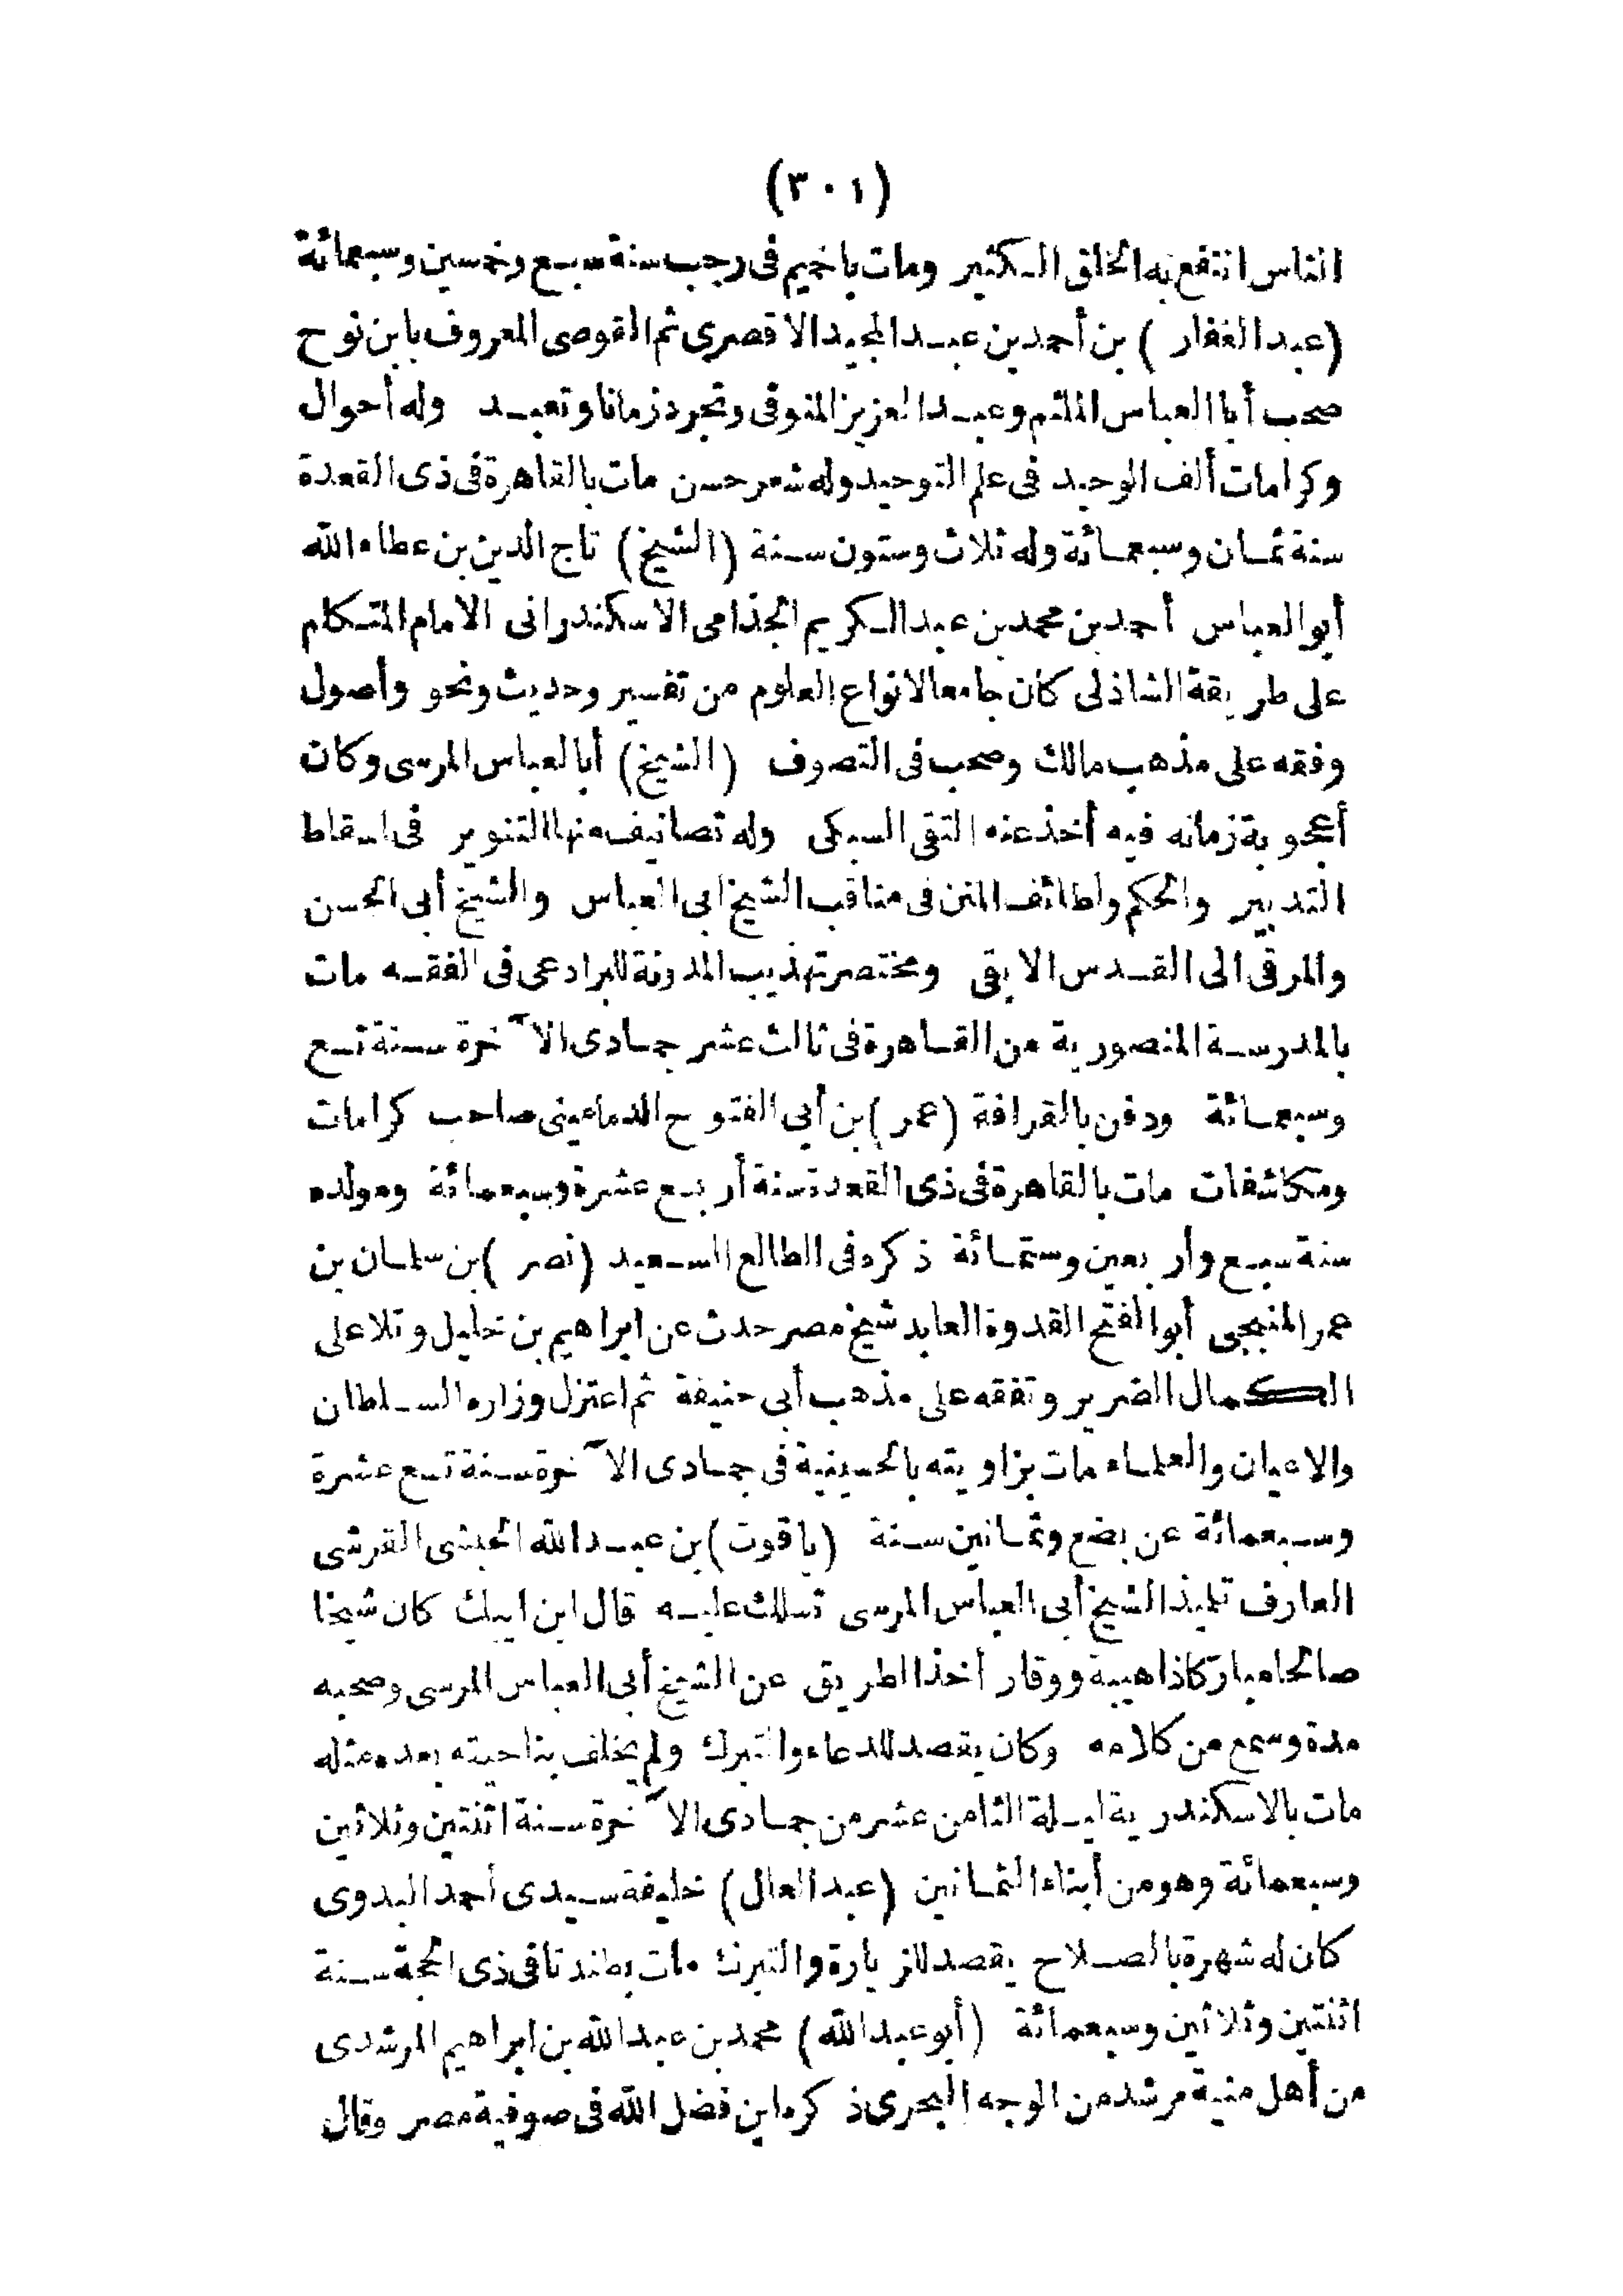 (٣٠١)
الناس انتفع به الخلق الكثير ومات باخميم فى رجب سنة سبع وخمسين وسبعمائة
(عبد الغفار) بن أحمد بن عبد المجيد الاقصرى ثم القوصى المعروف بابن نوح
صحب أبا العباس الملثم وعبد العزيز المنوفى وتجرد زمانا وتعبد وله أحوال
وكرامات ألف الوحيد فى علم التوحيد وله شعر حسن مات بالقاهرة فى ذى القعدة
سنة ثمان وسبعمائة وله ثلاث وستون سنة (الشيخ) تاج الدين بن عطاء الله
أبو العباس أحمد بن محمد بن عبد الكريم الجذامى الاسكندرانى الامام المتكلم
على طريقة الشاذلى كان جامعا لانواع العلوم من تفسير وحديث ونحو وأصول
وفقه على مذهب مالك وصحب فى التصوف (الشيخ) أبا لعباس المرسى وكان
أعجوبة زمانه فيه أخذ عنه التقى السبكى وله تصانيف منها التنوير فى اسقاط
التدبير والحكم ولطائف المنن فى مناقب الشيخ ابى العباس والشيخ أبى الحسن
والمرقى الى القدس الابقى ومختصر تهذيب المدونة للبرادعى فى الفقه مات
بالمدرسة المنصورية من القاهرة فى ثالث عشر جمادى الآخرة سنة تسع
وسبعمائة ودفن بالقرافة (عمر) بن أبى الفتوح الدماعينى صاحب كرامات
ومكاشفات مات بالقاهرة فى ذى القعدة سنة أربع عشرة وسبعمائة ومولده
سنة سبع وأربعين وستمائة ذكره فى الطالع السعيد (نصر) بن سلمان بن
عمر المنبجى أبو الفتح القدوة العابد شيخ مصر حدث عن ابراهيم بن خليل وتلا على
الكمال الضرير وتفقه على مذهب أبى حنيفة ثم اعتزل وزاره السلطان
والاعيان والعلماء مات بزاويته بالحسينية فى جمادى الآخرة سنة تسع عشرة
وسبعمائة عن بضع وثمانين سنة (ياقوت) بن عبد الله الحبشى القرشى
العارف تلميذ الشيخ أبى العباس المرسى تسلك عليه قال ابن ايبك كان شيخا
صالحا مباركا ذا هيبة ووقار أخذ الطريق عن الشيخ أبى العباس المرسى وصحبه
مدة وسمع من كلامه وكان يقصد للدعاء والتبرك ولم يخلف بناحيته بعده مثله
مات بالاسكندرية ليلة الثامن عشر من جمادى الآخرة سنة اثنتين وثلاثين
وسبعمائة وهو من أبناء الثمانين (عبد العال) خليفة سيدى أحمد البدوى
كان له شهرة بالصلاح يقصد للزيارة والتبرك مات بطندتا فى ذى الحجة سنة
اثنتين وثلاثين وسبعمائة (أبو عبد الله) محمد بن عبد الله بن ابراهيم المرشدى
من أهل منية مرشد من الوجه البحرى ذكره ابن فضل الله فى صوفية مصر وقال